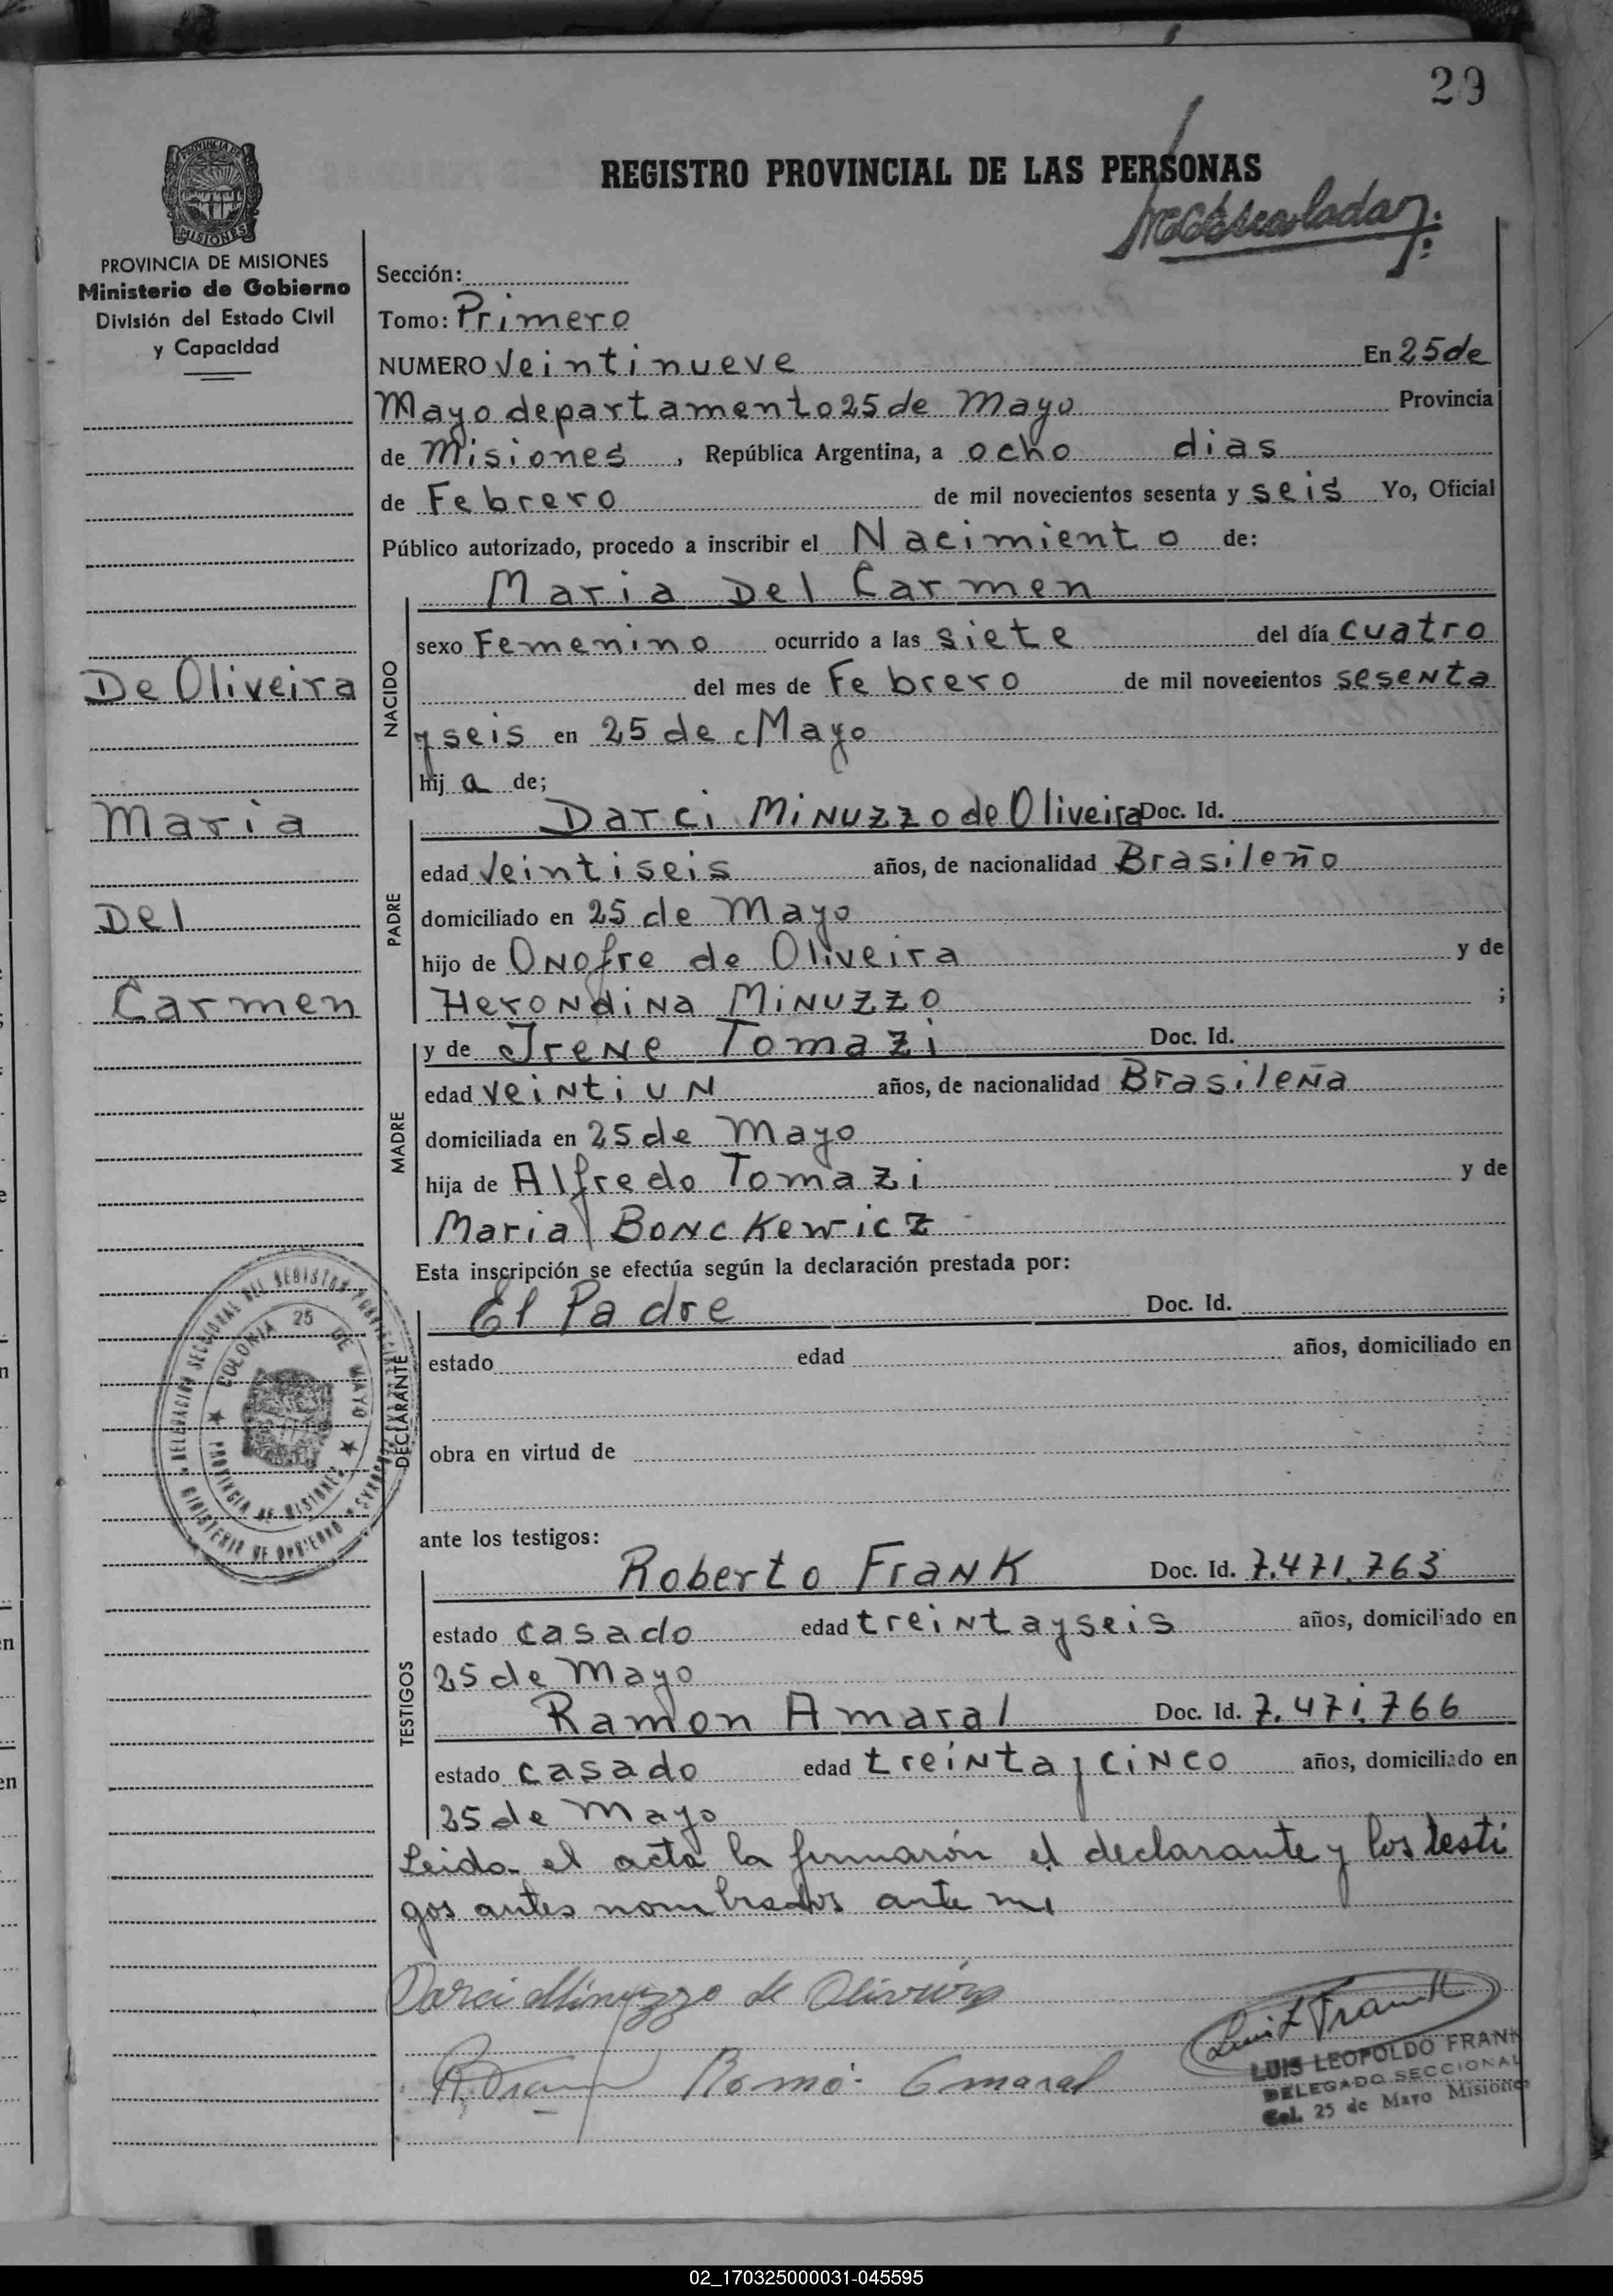 29
REGISTRO PROVINCIAL DE LAS PERSONAS
PROVINCIA DE
MISIONES
PROVINCIA DE MISIONES
Ministerio de Gobierno
División del Estado Civil
y Capacidad
De Oliveira
Maria
Del
Carmen
Sección:
Tomo: Primero
NUMERO Veintinueve En 25 de
Mayo departamento 25 de Mayo Provincia
de Misiones , República Argentina, a ocho dias
de Febrero de mil novecientos sesenta y seis Yo, Oficial
Público autorizado, procedo a inscribir el Nacimiento de:
Maria Del Carmen
NACIDO
sexo Femenino ocurrido a las siete del día cuatro
del mes de Febrero de mil novecientos sesenta
y seis en 25 de Mayo
hij a de;
PADRE
Darci Minuzzo de Oliveira Doc. Id.
edad Veintiseis años, de nacionalidad Brasileño
domiciliado en 25 de Mayo
hijo de Onofre de Oliveira y de
Herondina Minuzzo ;
MADRE
y de Irene Tomazi Doc. Id.
edad veintiun años, de nacionalidad Brasileña
domiciliada en 25 de Mayo
hija de Alfredo Tomazi y de
Maria Bonckewicz
Esta inscripción se efectúa según la declaración prestada por:
DECLARANTE
El Padre Doc. Id.
estado edad años, domiciliado en
obra en virtud de
ante los testigos:
TESTIGOS
Roberto Frank Doc. Id. 7.471.763
estado casado edad treinta y seis años, domiciliado en
25 de Mayo
Ramon Amaral Doc. Id. 7.471.766
estado casado edad treinta y cinco años, domiciliado en
25 de Mayo
Leida el acta la firmarón el declarante y los testi
gos antes nombrados ante mi
Darci Minuzzo de Oliveira
Luis L Frank
LUIS LEOPOLDO FRANK
DELEGADO SECCIONAL
Col. 25 de Mayo Misiones
COLONIA 25 DE MAYO
PROVINCIA DE MISIONES
DELEGACIÓN SECCIONAL DEL REGISTRO
MINISTERIO DE GOBIERNO
02_170325000031-045595